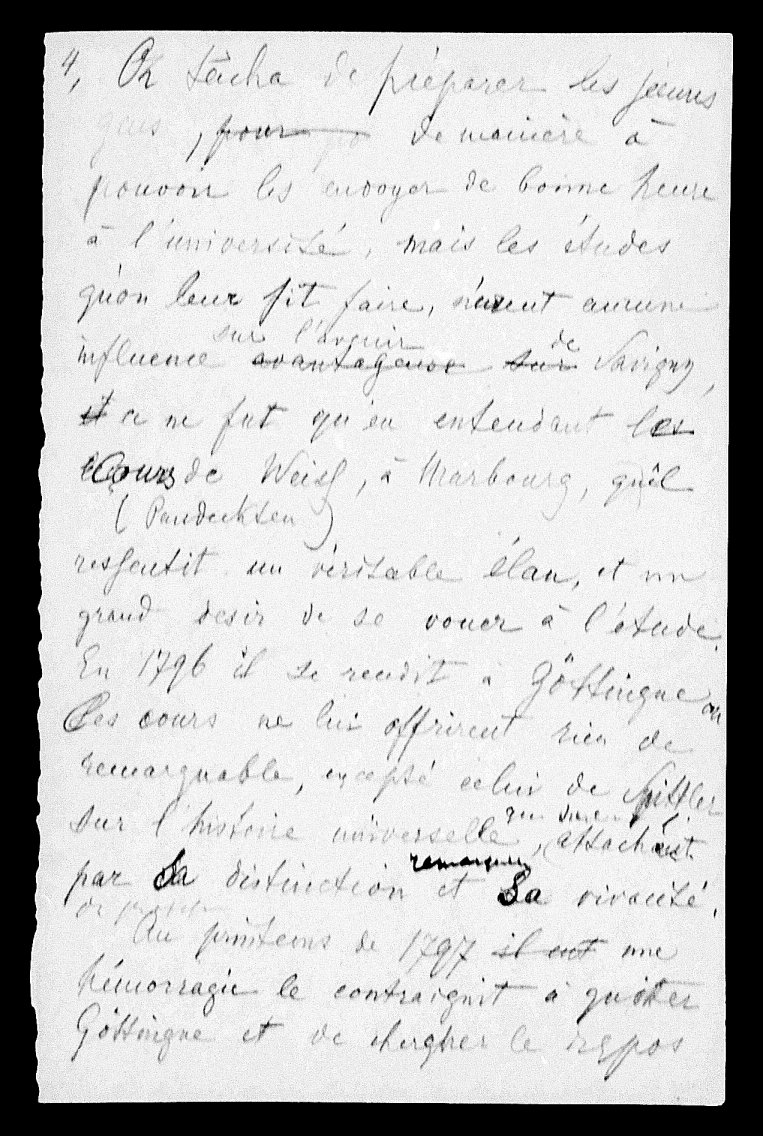 4, On tâcha de préparer les jeunes
gens, pour de manière à
pouvoir les envoyer de bonne heure
à l'université, mais les études
qu'on leur fit faire, n'eurent aucune
sur l'avenir de
influence avantageuse sur Savigny,
et ce ne fut qu'en entendant les
Cours de Weiss, à Marbourg, qu'il
(Pandecten)
ressentit un véritable élan, et un
grand desir de se vouer à l'étude.
En 1796 il se rendit à Göttingue où
les cours ne lui offrirent rien de
remarquable, excepté celui de Spittler
sur l'histoire universelle, attachant
remarquer
par Sa distinction et Sa vivacité.
Au printems de 1797 il eut une
hémorragie le contraignit à quitter
Göttingue et de chercher le repos